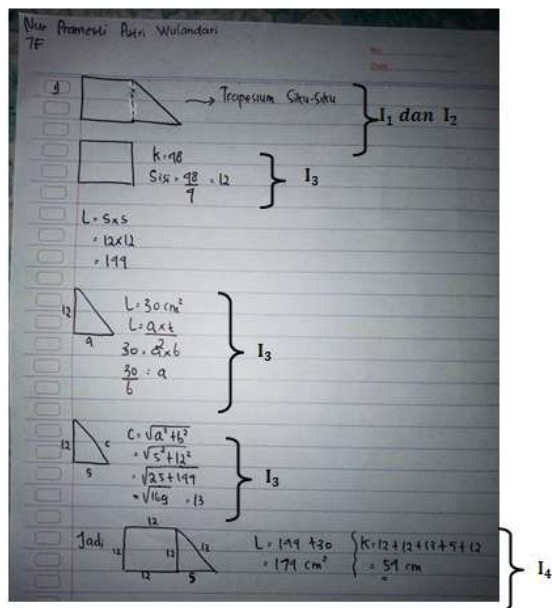 Nur Pramesti Putri Wulandari
7F
No:
Date:
1)
Trapesium Siku-Siku
I₁ dan I₂
K=48
Sisi = 48/4 = 12
I₃
L = S×S
= 12×12
= 144
12
a
L = 30 cm²
L = a×t/2
30 = a×6
30/6 = a
I₃
12
c
5
C = √a²+b²
= √5²+12²
= √25+144
= √169 = 13
I₃
Jadi
12
12
12
13
12
5
L = 144 + 30
= 174 cm²
K = 12+12+13+5+12
= 54 cm
I₄